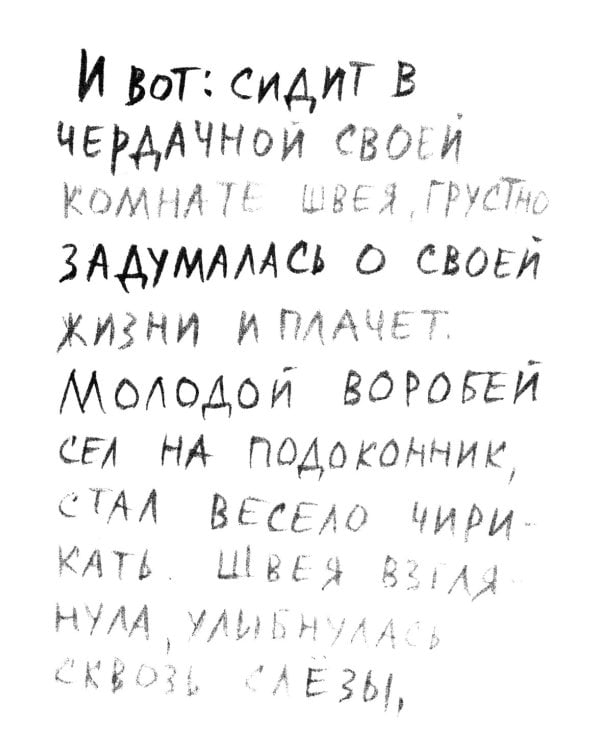 И вот: сидит в
чердачной своей
комнате швея, грустно
задумалась о своей
жизни и плачет.
Молодой воробей
сел на подоконник,
стал весело чири-
кать. Швея взгля-
нула, улыбнулась
сквозь слёзы,